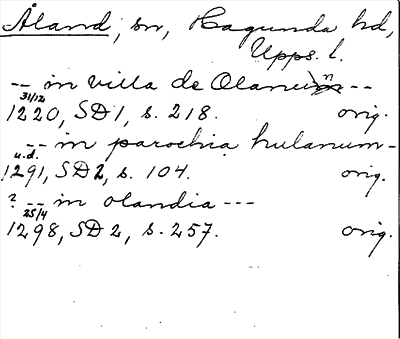 Åland, sn, Hagunda hd,
Upps. l.
-- in villa de Olanum --
n
31/12
1220, SD 1, s. 218. orig.
-- in parochia hulanum -
u.d.
1291, SD 2, s. 104. orig.
? -- in olandia ---
25/4
1298, SD 2, s. 257. orig.